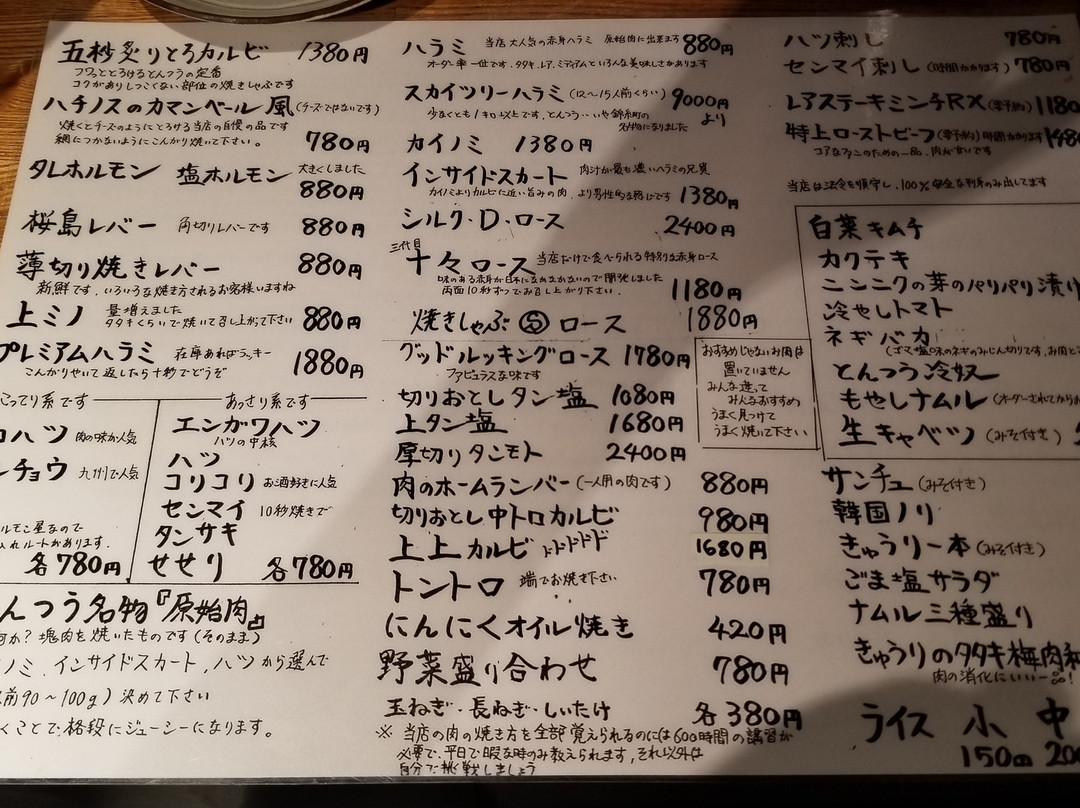 五秒炙りとろカルビ 1380円
フワッととろけるとんつうの定番
コクがありしつこくない部位の焼きしゃぶです
ハチノスのカマンベール風(チーズではないです)
焼くとチーズのようにとろける当店の自慢の品です
網につかないようにこんがり焼いて下さい。 780円
タレホルモン 塩ホルモン 大きくしました
880円
桜島レバー 角切りレバーです 880円
薄切り焼きレバー 880円
新鮮です.いろいろな焼き方されるお客様いますね
上ミノ 量増えました
タタキくらいで焼いて召し上がって下さい 880円
プレミアムハラミ 在庫あればラッキー
こんがりやいて返したら十秒でどうぞ 1880円
こってり系です
コハツ 肉の味が人気
ンチョウ 九州で人気
ルモン屋なので
入れルートがあります.
各780円
あっさり系です
エンガワハツ
ハツの中核
ハツ
コリコリ お酒好きに人気
センマイ 10秒焼きで
タンサキ
せせり 各780円
んつう名物『原始肉』
何か?塊肉を焼いたものです(そのまま)
ノミ.インサイドスカート,ハツから選んで
前90〜100g)決めて下さい
くことで格段にジューシーになります。
ハラミ 当店大人気の赤身ハラミ 原始肉に出来ます 880円
オーダー率一位です.タタキ.レア.ミディアムといろんな美味しさがあります
スカイツリーハラミ(12〜15人前くらい) 9000円
より
少なくとも1キロ以上です.とんつう・・いや錦糸町の
名物になりました
カイノミ 1380円
インサイドスカート 肉汁が最も濃いハラミの兄貴
カイノミよりカルビに近い旨みの肉.より男性的な感じです 1380円
シルク・D・ロース 2400円
三代目
十々ロース 当店だけで食べられる特別な赤身ロース
味のある赤身が日本になかなかないので開発しました
両面10秒ずつでお召し上がり下さい. 1180円
焼きしゃぶ ロース 1880円
グッドルッキングロース 1780円
ファビュラスな味です
切りおとしタン塩 1080円
上タン塩 1680円
厚切りタンモト 2400円
おすすめじゃないお肉は
置いていません
みんな違って
みんなおすすめ
うまく見つけて
うまく焼いて下さい
肉のホームランバー(一人用の肉です) 880円
切りおとし中トロカルビ 980円
上上カルビ トドドドド 1680円
トントロ 端でお焼き下さい 780円
にんにくオイル焼き 420円
野菜盛り合わせ 780円
玉ねぎ・長ねぎ・しいたけ 各380円
※ 当店の肉の焼き方を全部覚えられるのには600時間の講習が
必要で、平日で暇な時のみ教えられます,それ以外は
自分で挑戦しましょう
ハツ刺し 780円
センマイ刺し(時間かかります) 780円
レアステーキミンチRX(要予約) 1180
特上ローストビーフ(要予約)時間かかります 1480
コアなファンのための一品.肉が甘いです
当店は法令を順守し.100%安全な刺身のみ出してます
白菜キムチ
カクテキ
ニンニクの芽のパリパリ漬け
冷やしトマト
ネギバカ
(ゴマ塩味のネギのみじん切りです.お肉と
とんつう冷奴
もやしナムル(オーダーされてからお
生キャベツ(みそ付き)
サンチュ(みそ付き)
韓国ノリ
きゅうり一本(みそ付き)
ごま塩サラダ
ナムル三種盛り
きゅうりのタタキ梅肉和
肉の消化にいい一品!
ライス 小 中
150円 200